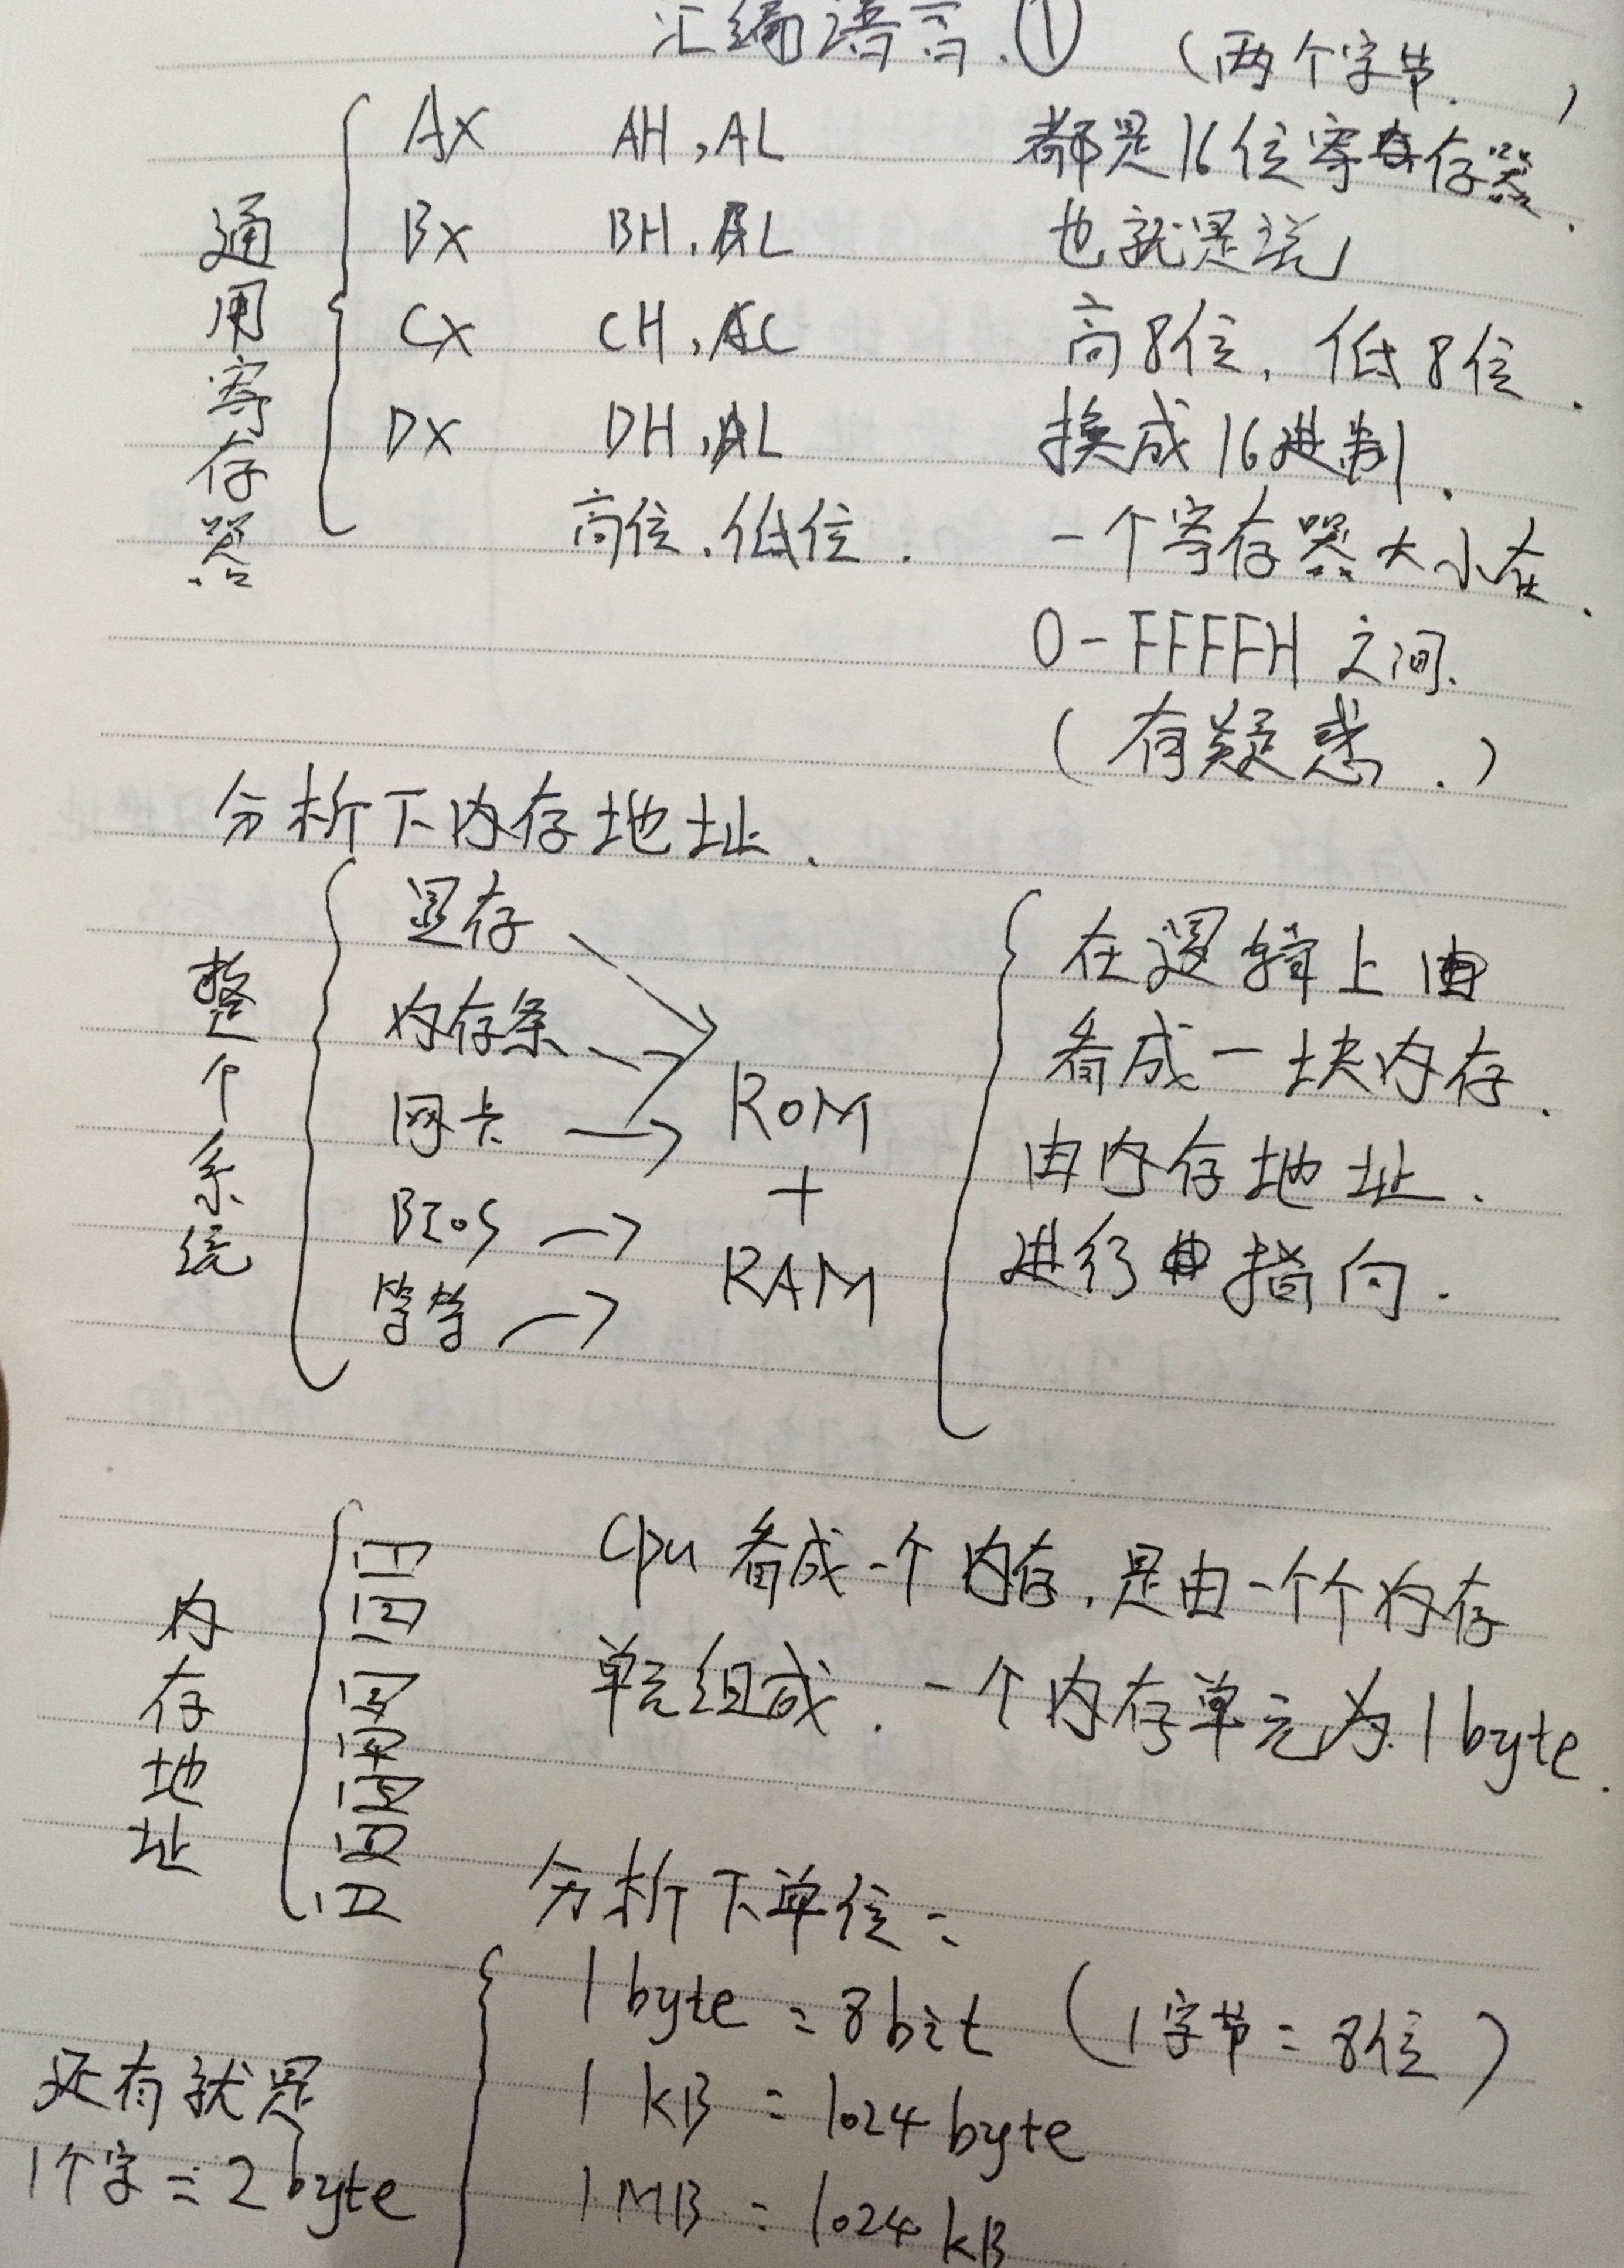 汇编语言.①
(两个字节.)
通用寄存器
AX AH,AL
BX BH,BL
CX CH,AC
DX DH,AL
高位.低位.
都是16位寄存器.
也就是说
高8位,低8位.
换成16进制.
一个寄存器大小在.
0-FFFFH之间.
(有疑惑.)
分析下内存地址.
整个系统
显存
内存条
网卡
BIOS
等等
ROM
+
RAM
在逻辑上由
看成一块内存.
由内存地址.
进行指向.
内存地址
1
2
3
4
5
cpu看成一个内存.是由一个个内存
单元组成.一个内存单元为1byte.
分析下单位:
1byte=8bit(1字节=8位)
1KB=1024byte
1MB=1024KB
还有就是
1个字=2byte